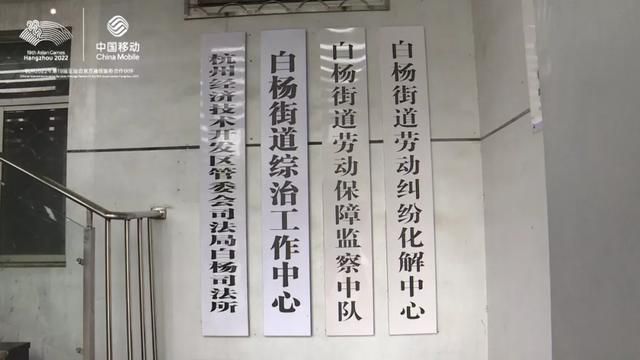 19th Asian Games
Hangzhou 2022
中国移动
China Mobile
杭州经济技术开发区管委会司法局白杨司法所
白杨街道综治工作中心
白杨街道劳动保障监察中队
白杨街道劳动纠纷化解中心